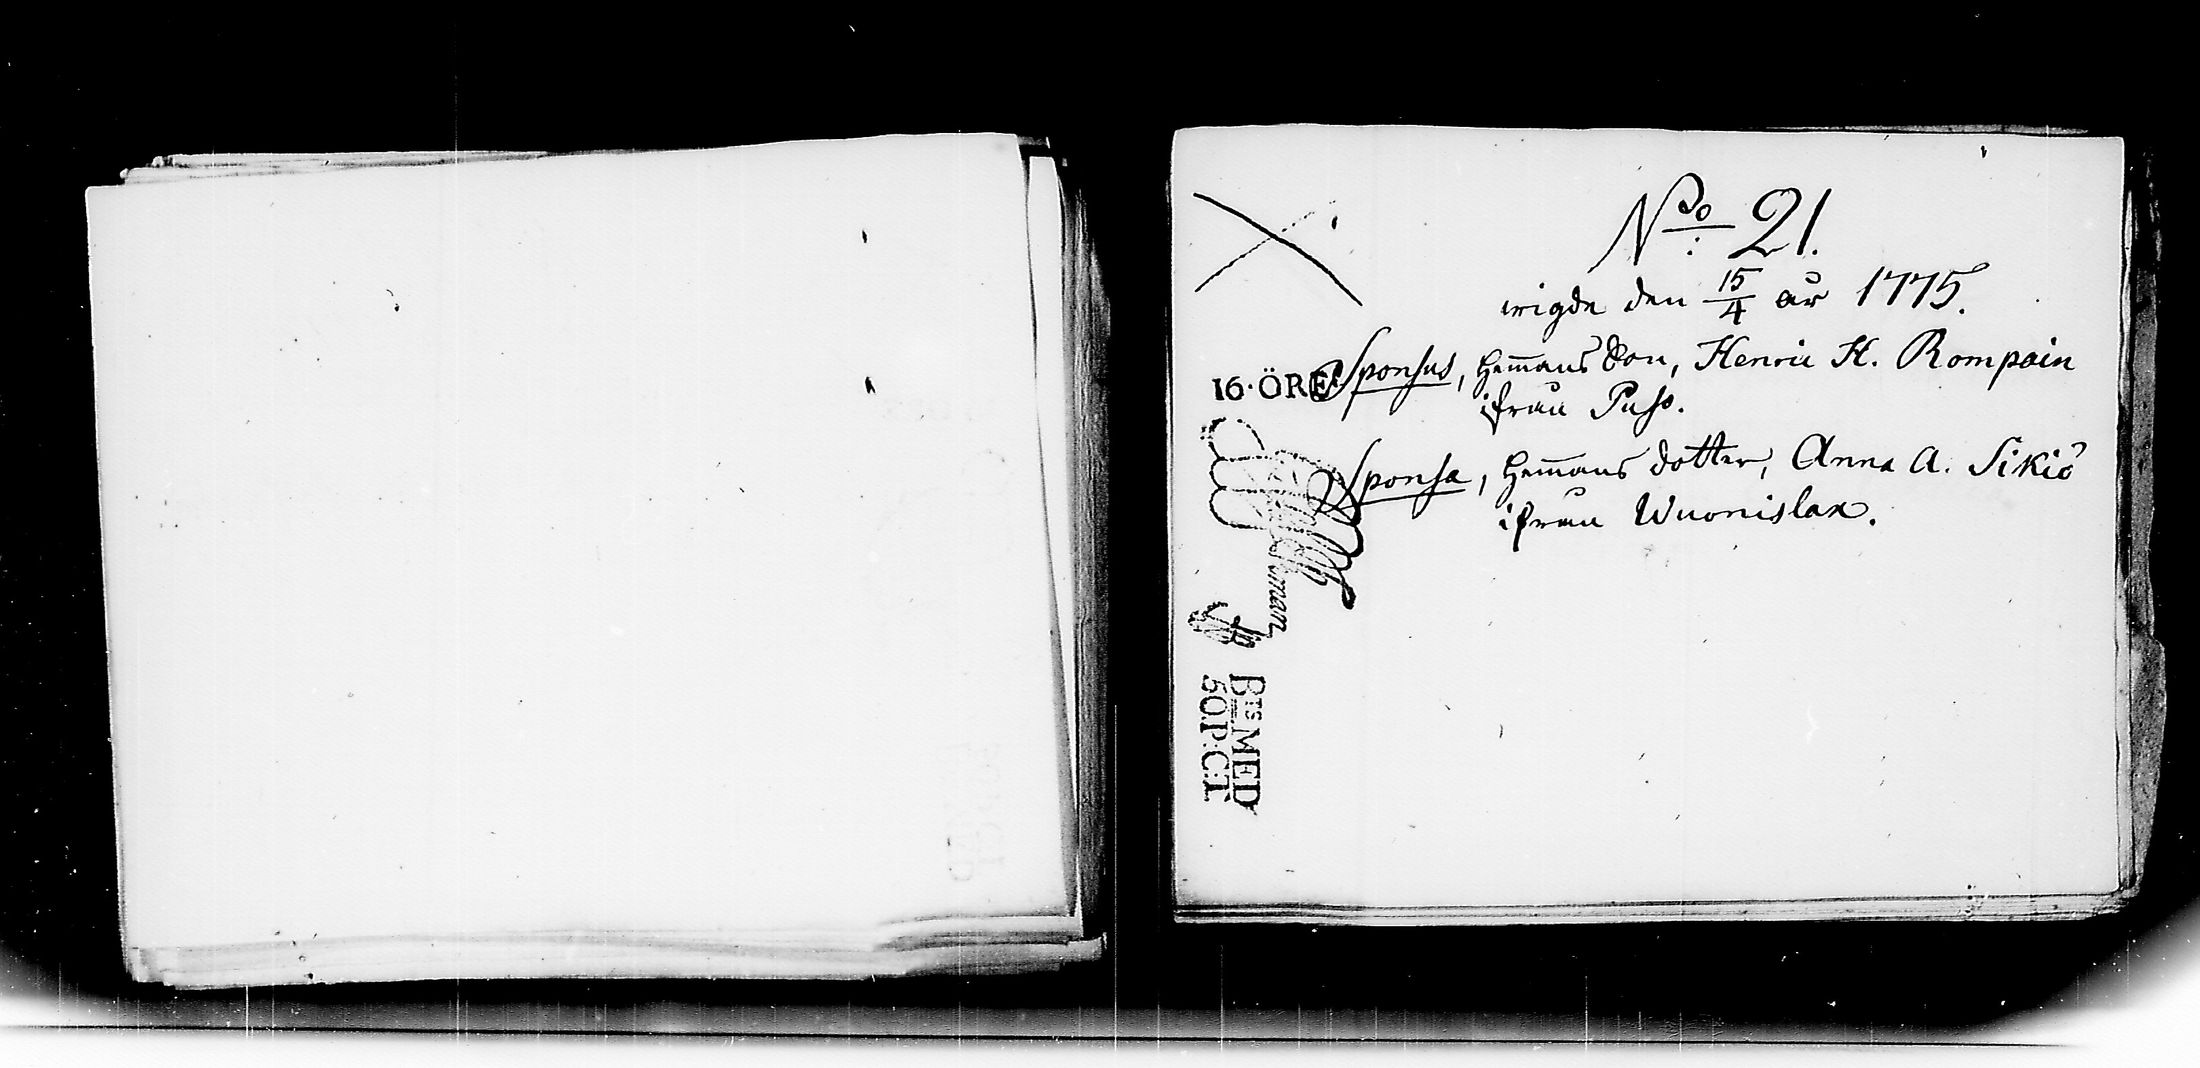 No 21.
wigde den 15/4 år 1775.
Sponsus, Hem̅ans Son, Henric H. Rompain
ifrån Puso.
Sponsa, Hem̅ans dotter, Anna A. Sikiö
ifrån Wuonislax.
16·ÖRE
BTS MED
5 Ö.P:C:T.